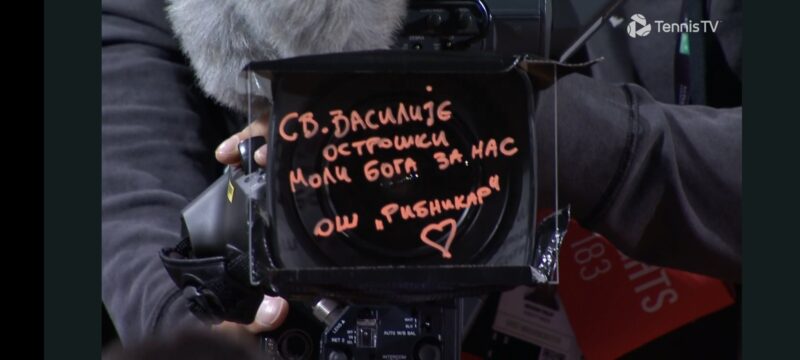 TennisTV
СВ. ВАСИЛИЈЕ
ОСТРОШКИ
МОЛИ БОГА ЗА НАС
ОШ „РИБНИКАР“
183